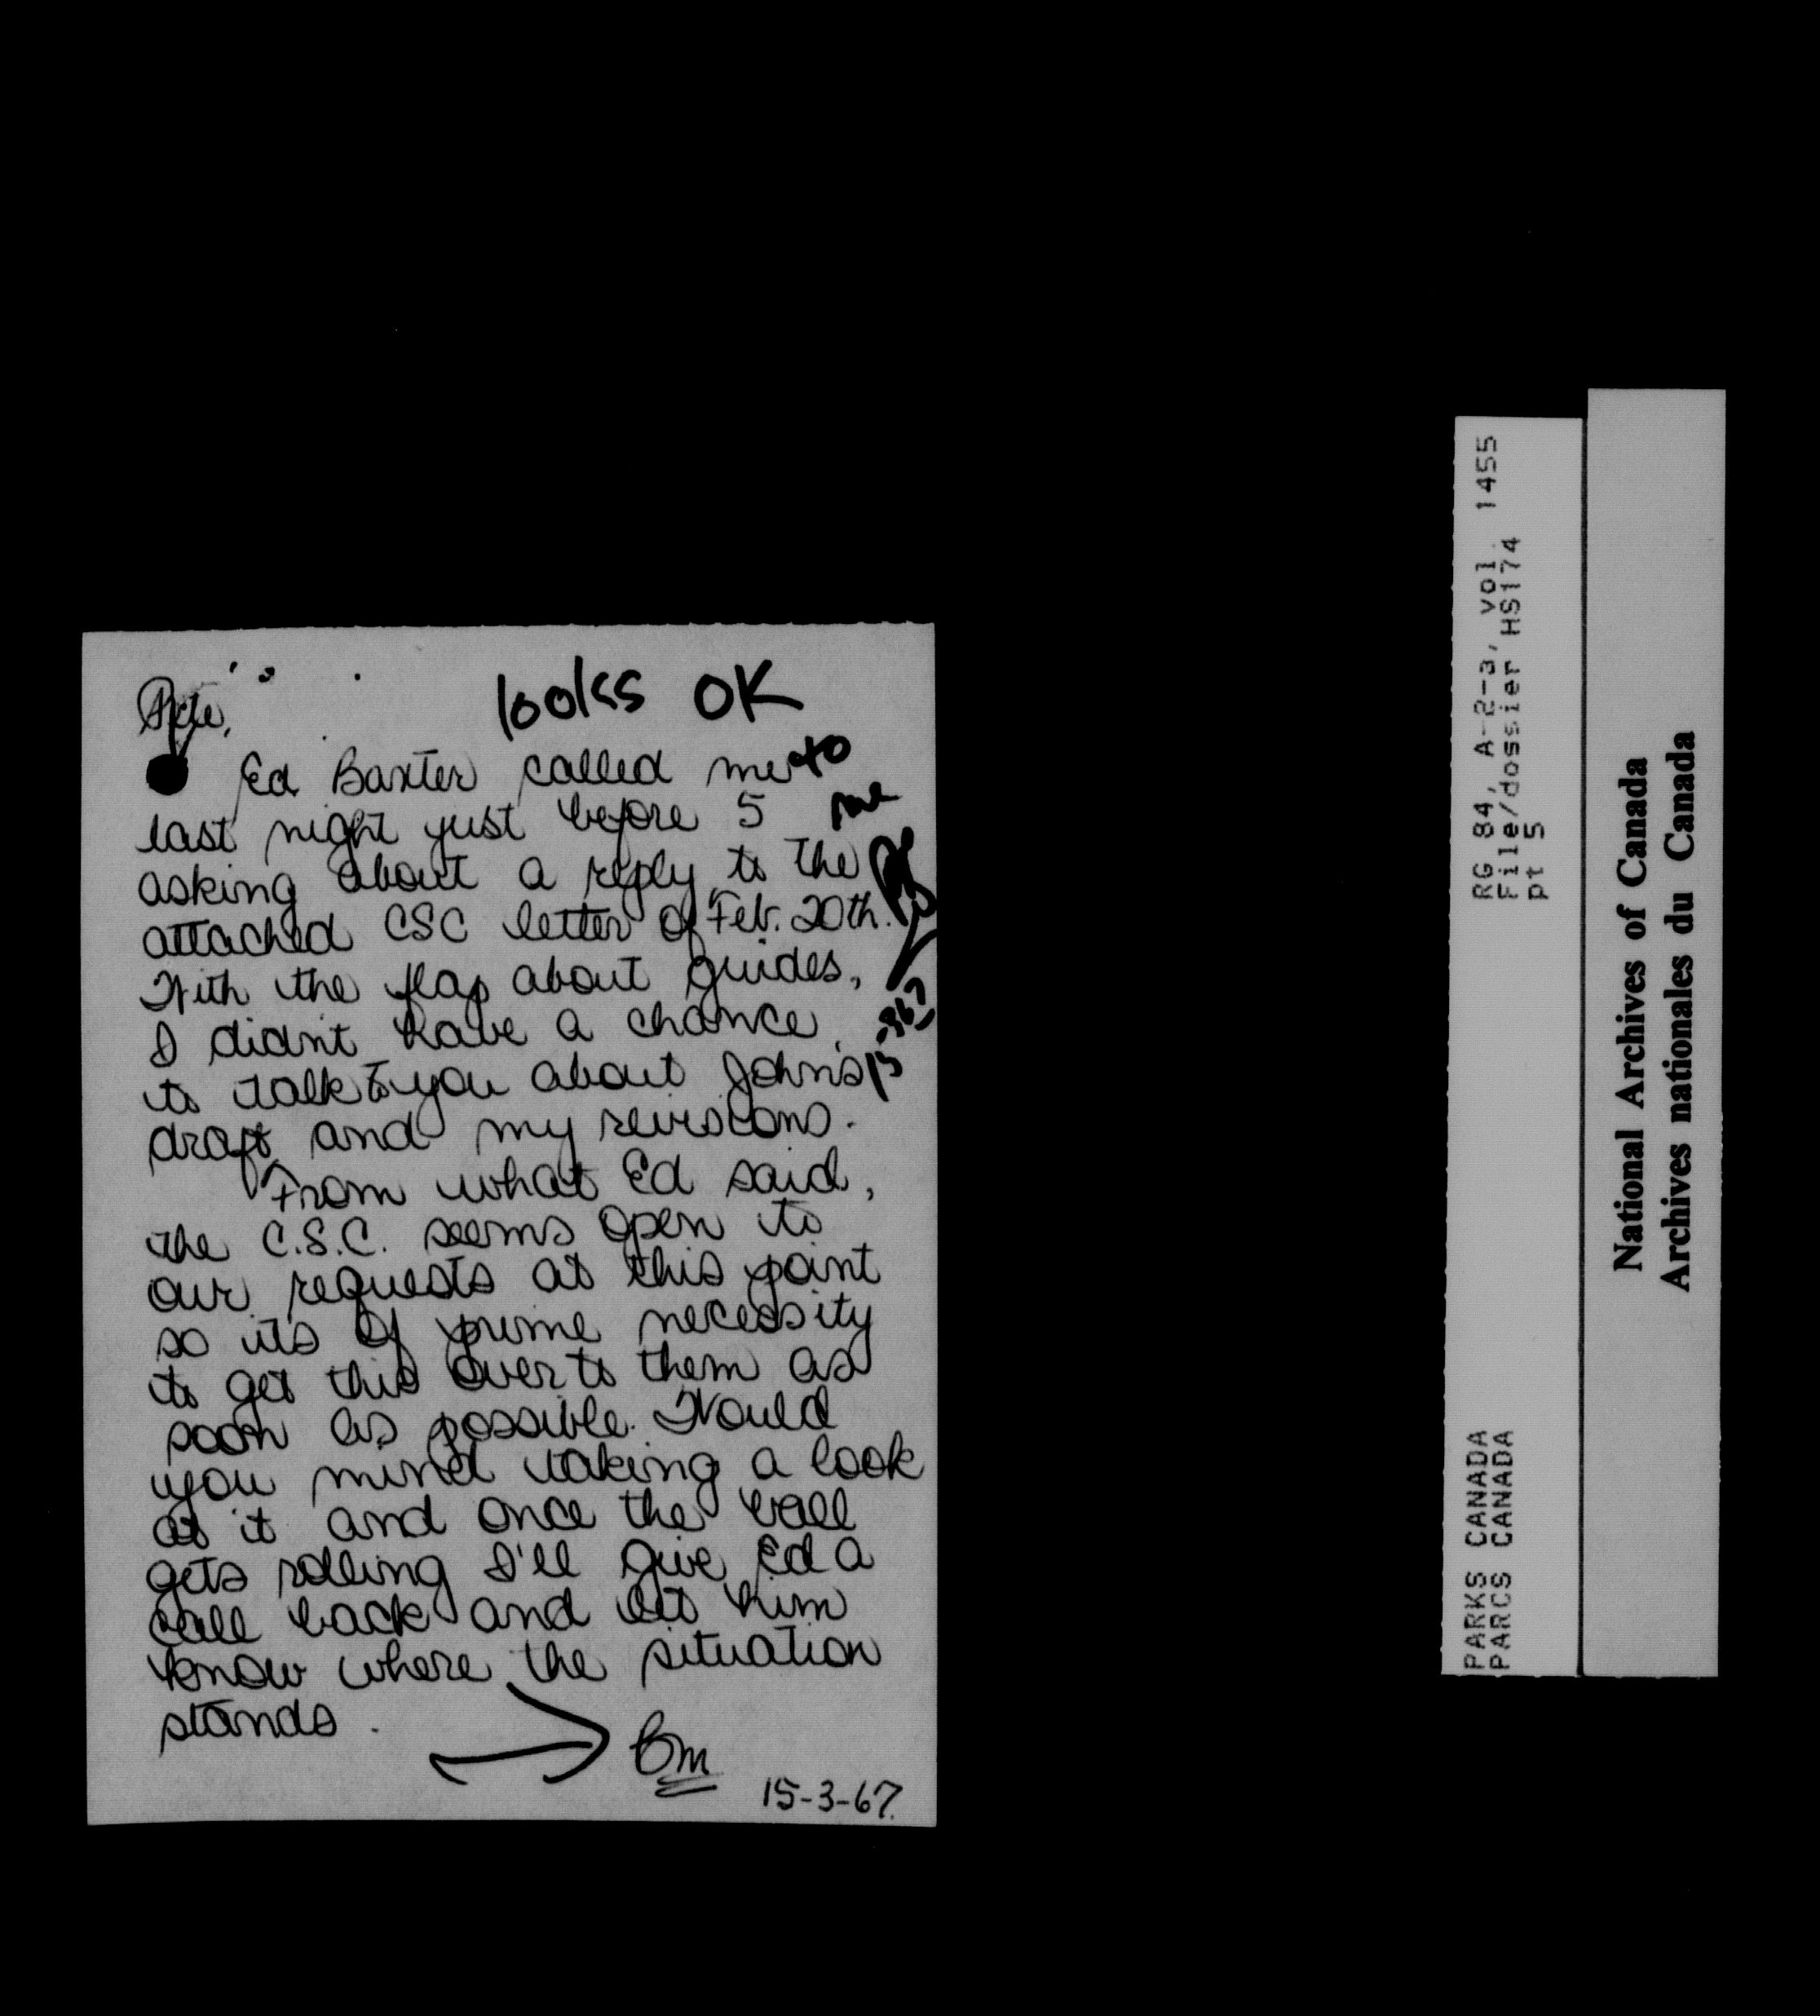 Pete,
looks OK
to
me
Ed Baxter called me
last night just before 5
asking about a reply to the
attached CSC letter of Feb. 20th.
With the flap about guides,
I didn't have a chance
to talk to you about John's
draft and my revisions.
From what Ed said,
the C.S.C. seems open to
our requests at this point
so its of prime necessity
to get this over to them as
soon as possible. Would
you mind taking a look
at it and once the ball
gets rolling I'll give Ed a
call back and let him
know where the situation
stands.
BM
15-3-67.
PARKS CANADA RG 84, A-2-3, vol. 1455
PARCS CANADA File/dossier HS174
pt 5
National Archives of Canada
Archives nationales du Canada